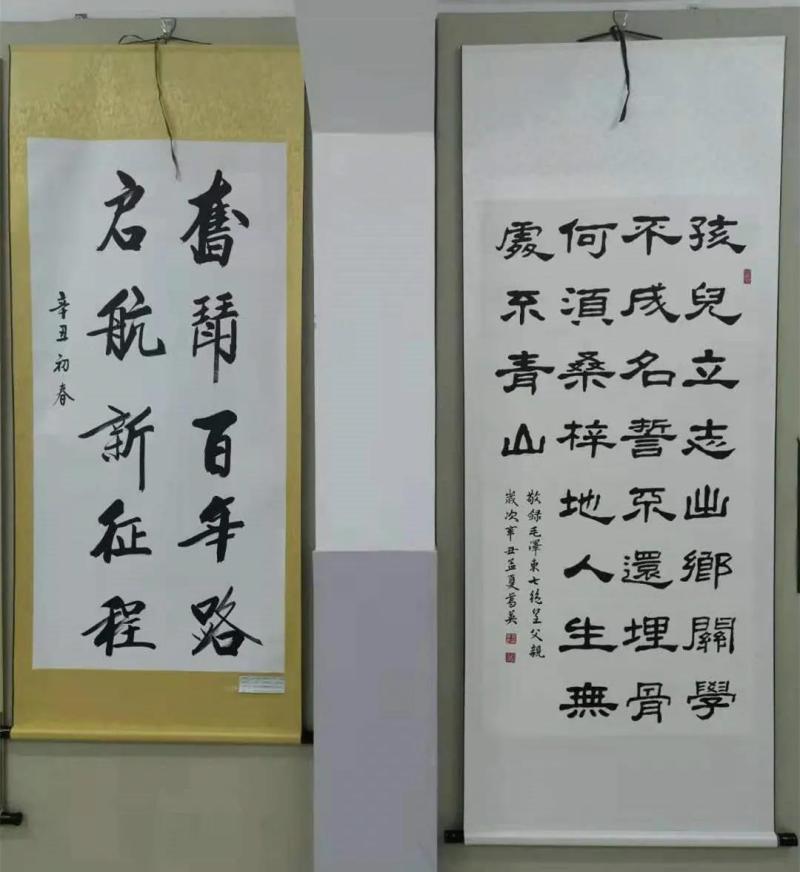 奮鬥百年路
启航新征程
辛丑初春
孩兒立志出鄉關學
不成名誓不還埋骨
何須桑梓地人生無
處不青山
敬録毛澤東七絶呈父親
歲次辛丑孟夏